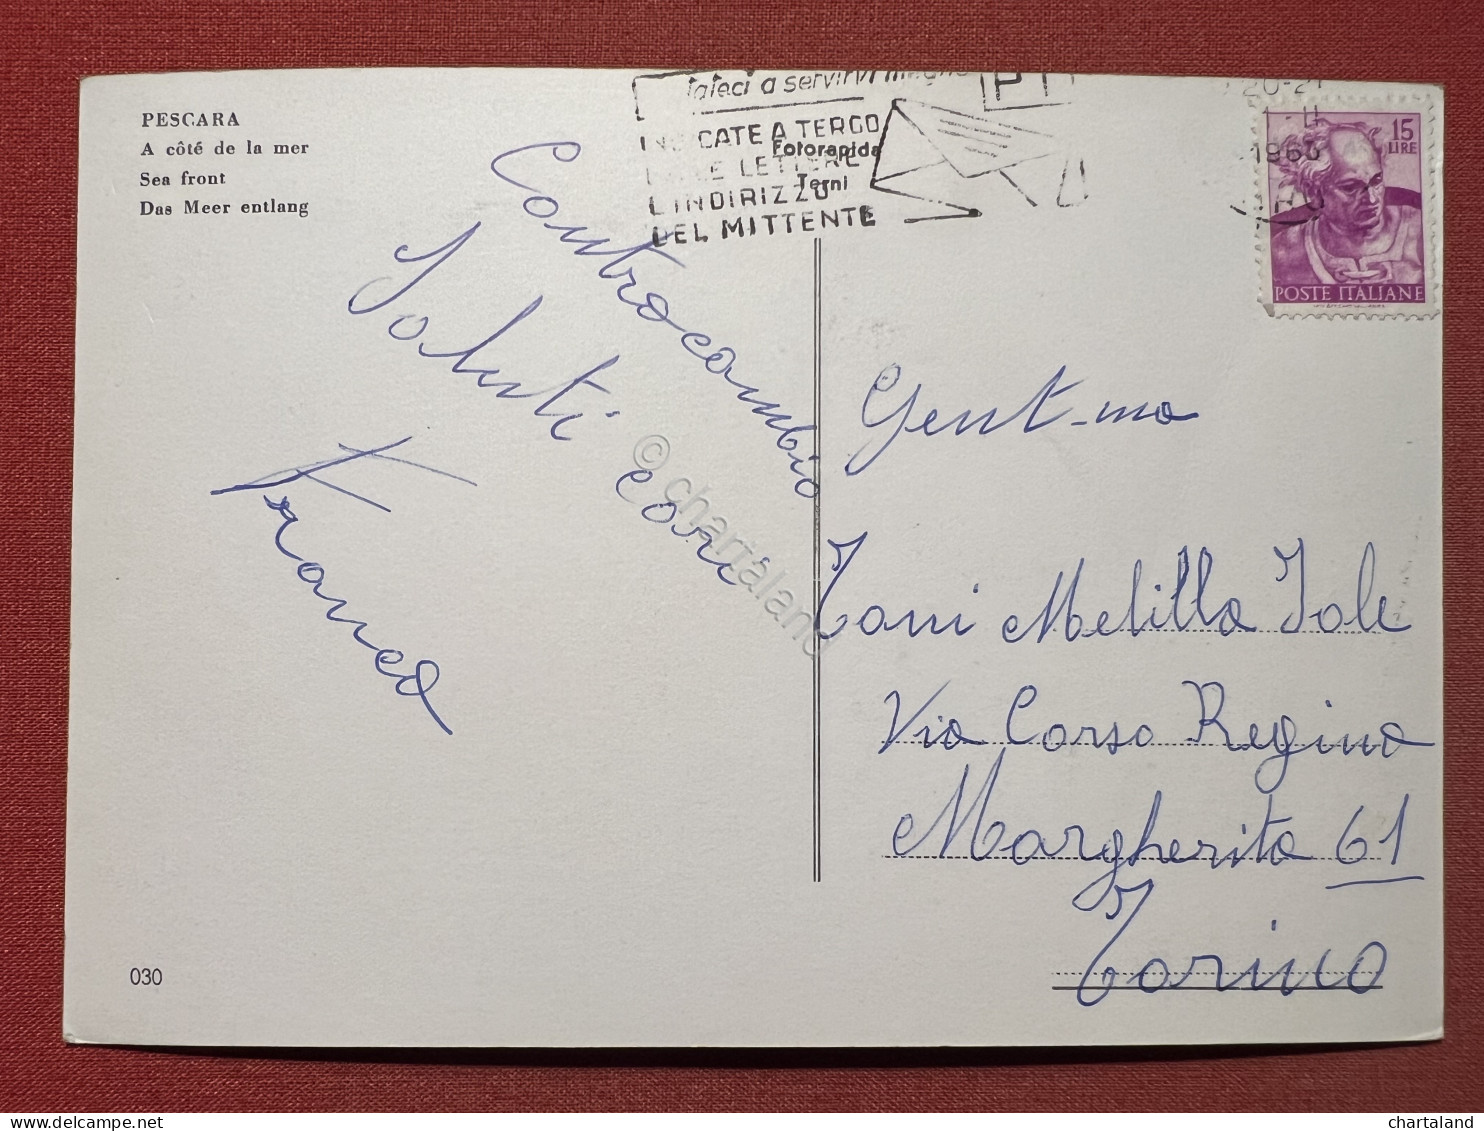 PESCARA
A côté de la mer
Sea front
Das Meer entlang
fateci a servirvi meglio
PT
INDICATE A TERGO
DELLE LETTERE
L'INDIRIZZO
DEL MITTENTE
Fotorapida
Terni
20-21
196
15
LIRE
POSTE ITALIANE
Contracambio
Saluti cari
Franco
Gent-ma
Toni Melilla Iole
Via Corso Regina
Margherita 61
Torino
030
© chartaland
delcampe.net
chartaland